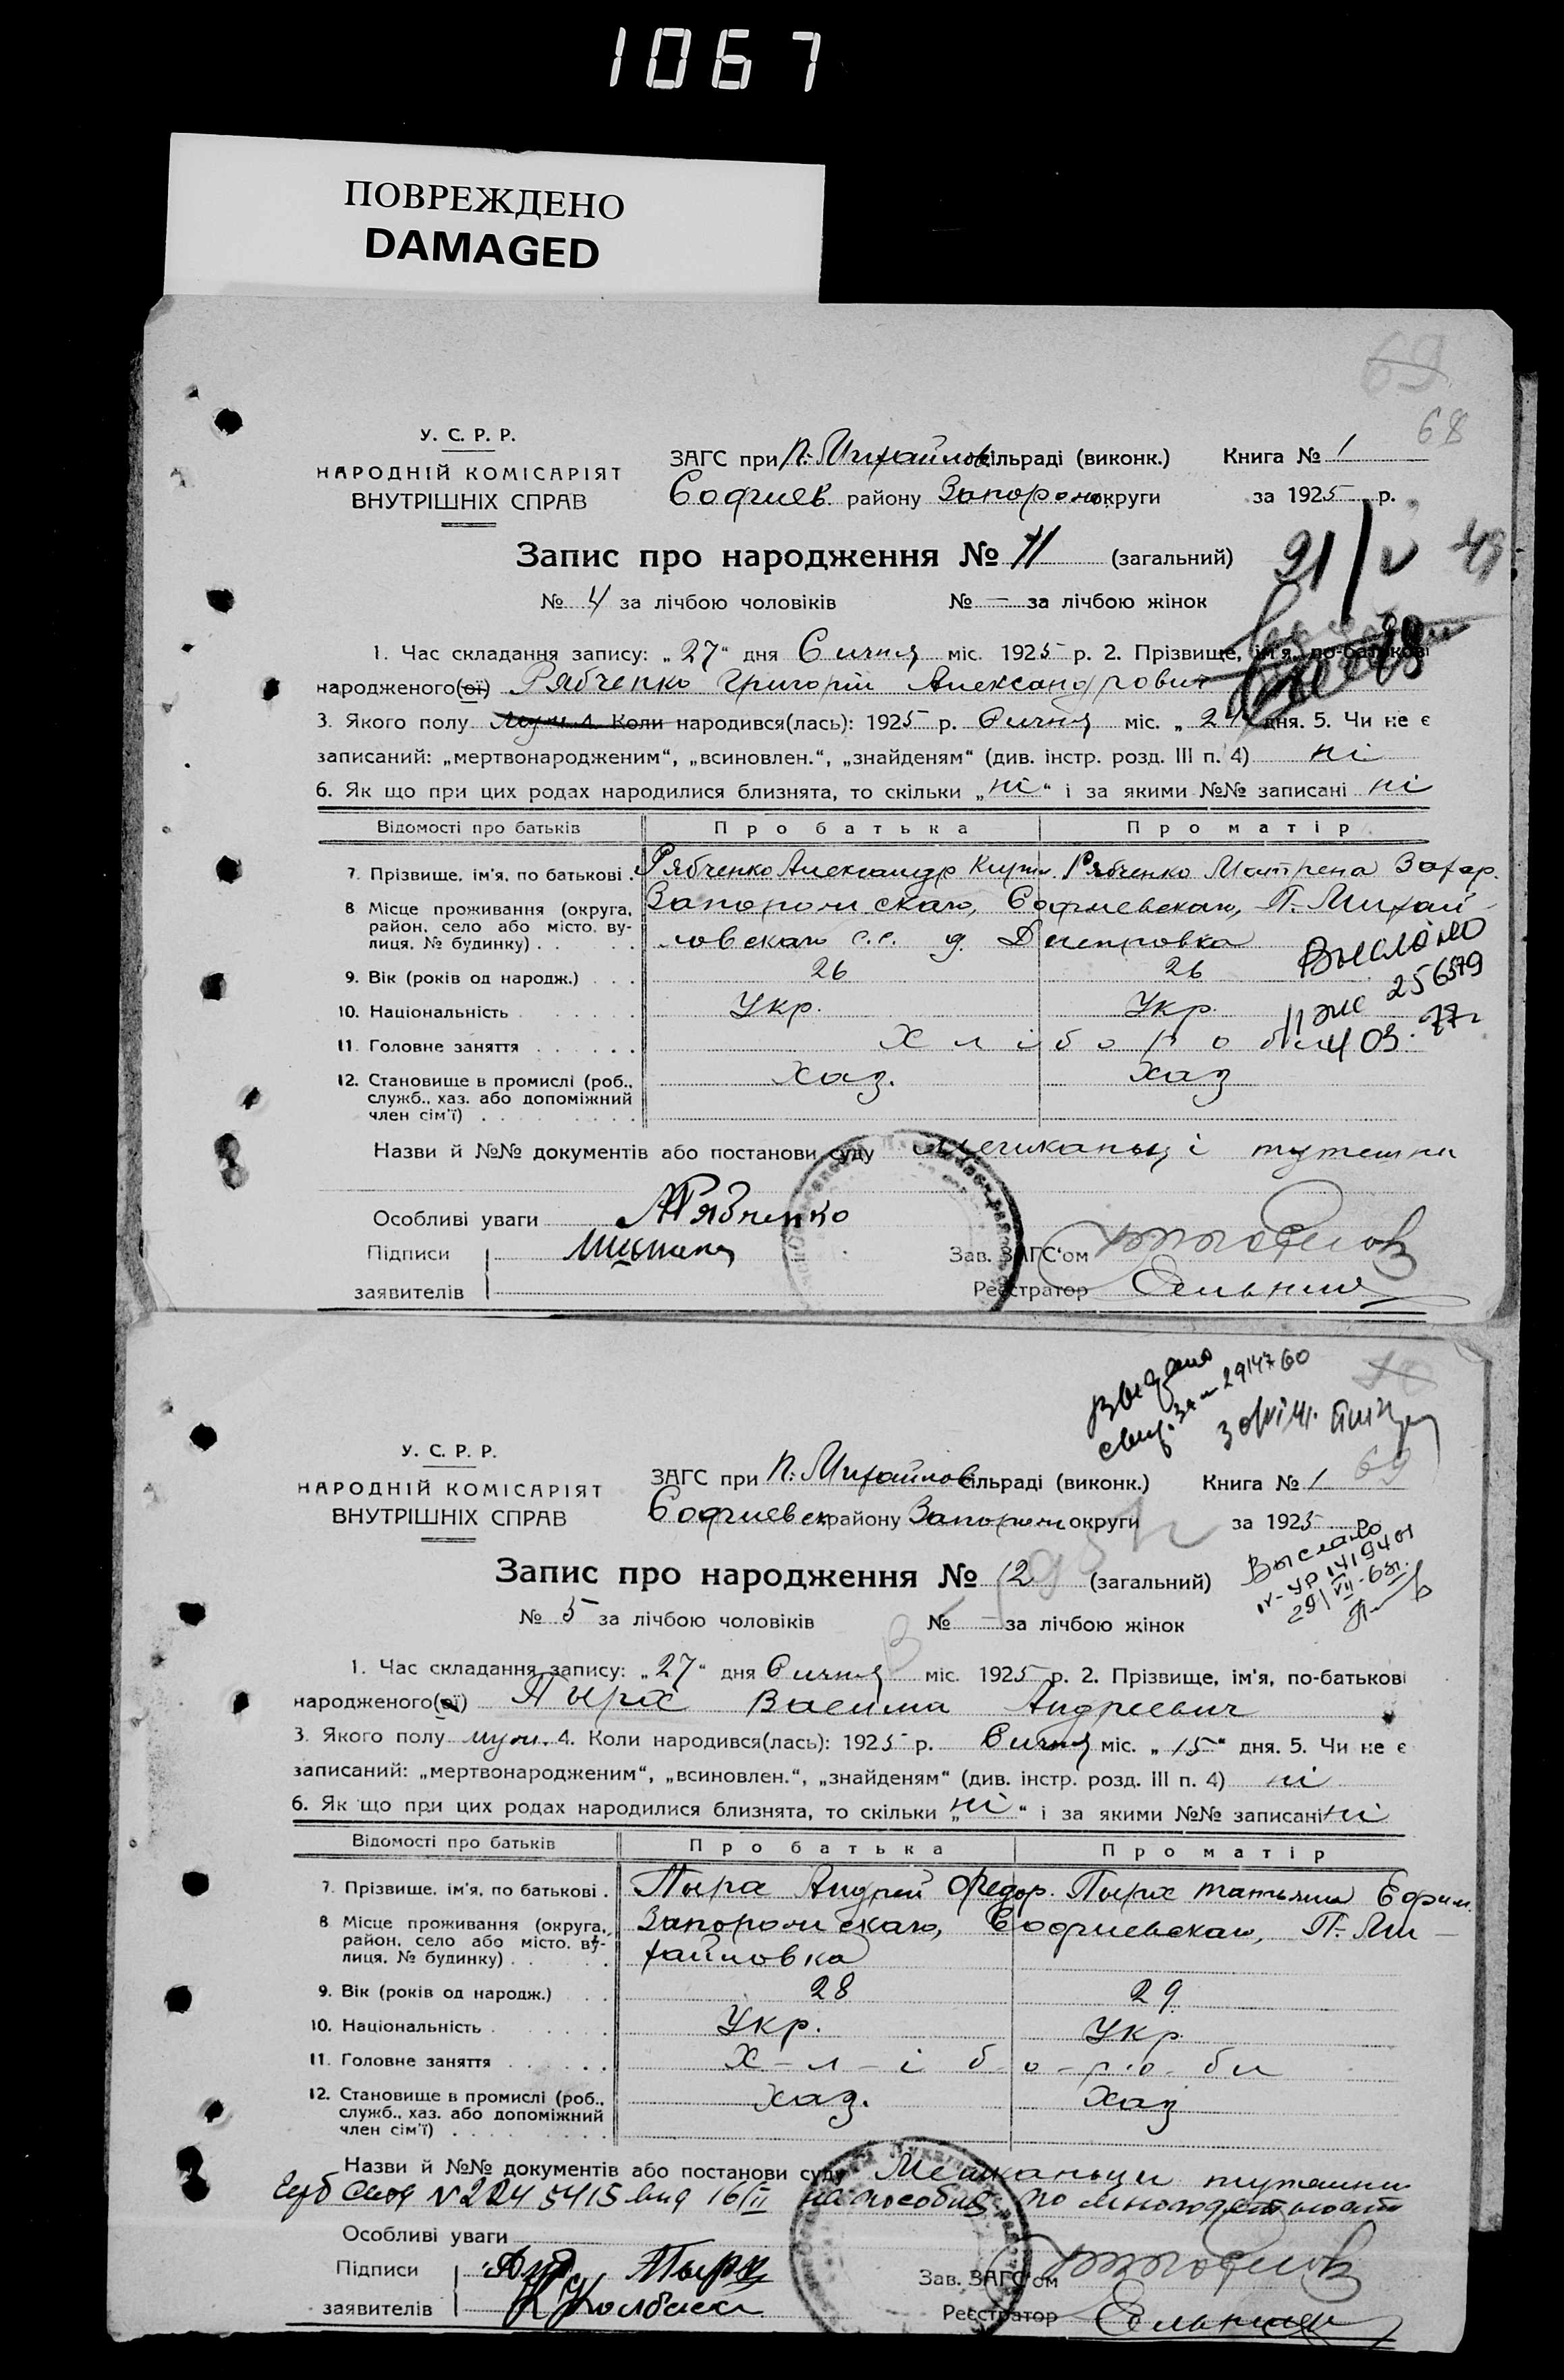 1067
ПОВРЕЖДЕНО
DAMAGED
69
68
У. С. Р. Р.
НАРОДНІЙ КОМІСАРІЯТ
ВНУТРІШНІХ СПРАВ
ЗАГС при П. Михайлов. сільраді (виконк.) Книга № 1
Софиев. району Запорож. округи за 1925 р.
Запис про народження № 11 (загальний)
№ 4 за лічбою чоловіків № — за лічбою жінок
21/V 49
1. Час складання запису: „27“ дня Січня міс. 1925 р. 2. Прізвище, ім'я, по-батькові
народженого(ої) Рябченко Григорій Александрович
3. Якого полу муж. 4. Коли народився(лась): 1925 р. Січня міс. „24“ дня. 5. Чи не є
записаний: „мертвонародженим“, „всиновлен.“, „знайденям“ (див. інстр. розд. III п. 4) ні
6. Як що при цих родах народилися близнята, то скільки „ні“ і за якими №№ записані ні
Відомості про батьків Про батька Про матір
7. Прізвище, ім'я, по батькові . Рябченко Александр Кузм. Рябченко Матрена Захар.
8 Місце проживання (округа, район, село або місто, вулиця, № будинку) . . Запорожскаго, Софиевскаго, П. Михай
ловскаго с.с. д. Дмитровка
Выслано
9. Вік (років од народж.) . . . 26 26
256579
10. Національність Укр. Укр.
11. Головне заняття Хлібороби
403. 77г
12. Становище в промислі (роб., служб., хаз. або допоміжний член сім'ї) Хаз. Хаз
Назви й №№ документів або постанови суду мешканьці тутешни
Особливі уваги А Рябченко
Підписи
заявителів
Зав. ЗАГС'ом
Реєстратор
выдано
свид. 2914760
70
69
У. С. Р. Р.
НАРОДНІЙ КОМІСАРІЯТ
ВНУТРІШНІХ СПРАВ
ЗАГС при П. Михайлов. сільраді (виконк.) Книга № 1
Софиевск. району Запорож. округи за 1925 р.
Выслано
IV-УР 1419401
29/VII-63г.
Запис про народження № 12 (загальний)
№ 5 за лічбою чоловіків № — за лічбою жінок
1. Час складання запису: „27“ дня Січня міс. 1925 р. 2. Прізвище, ім'я, по-батькові
народженого(ої) Пыра Васили Андреевич
3. Якого полу муж. 4. Коли народився(лась): 1925 р. Січня міс. „15“ дня. 5. Чи не є
записаний: „мертвонародженим“, „всиновлен.“, „знайденям“ (див. інстр. розд. III п. 4) ні
6. Як що при цих родах народилися близнята, то скільки „ні“ і за якими №№ записані ні
Відомості про батьків Про батька Про матір
7. Прізвище, ім'я, по батькові . Пыра Андрей Федор. Пыра Татьяна Ефим.
8 Місце проживання (округа, район, село або місто, вулиця, № будинку) . . Запорожскаго, Софиевскаго, П. Ми-
хайловка
9. Вік (років од народж.) 28 29
10. Національність Укр. Укр.
11. Головне заняття Х-л-і-б-о-р-о-би
12. Становище в промислі (роб., служб., хаз. або допоміжний член сім'ї) хаз. Хаз
Назви й №№ документів або постанови суду Мешканьци тутешни
16/II на пособие по многодетности
Особливі уваги
Підписи Пыра
заявителів
Зав. ЗАГС'ом
Реєстратор